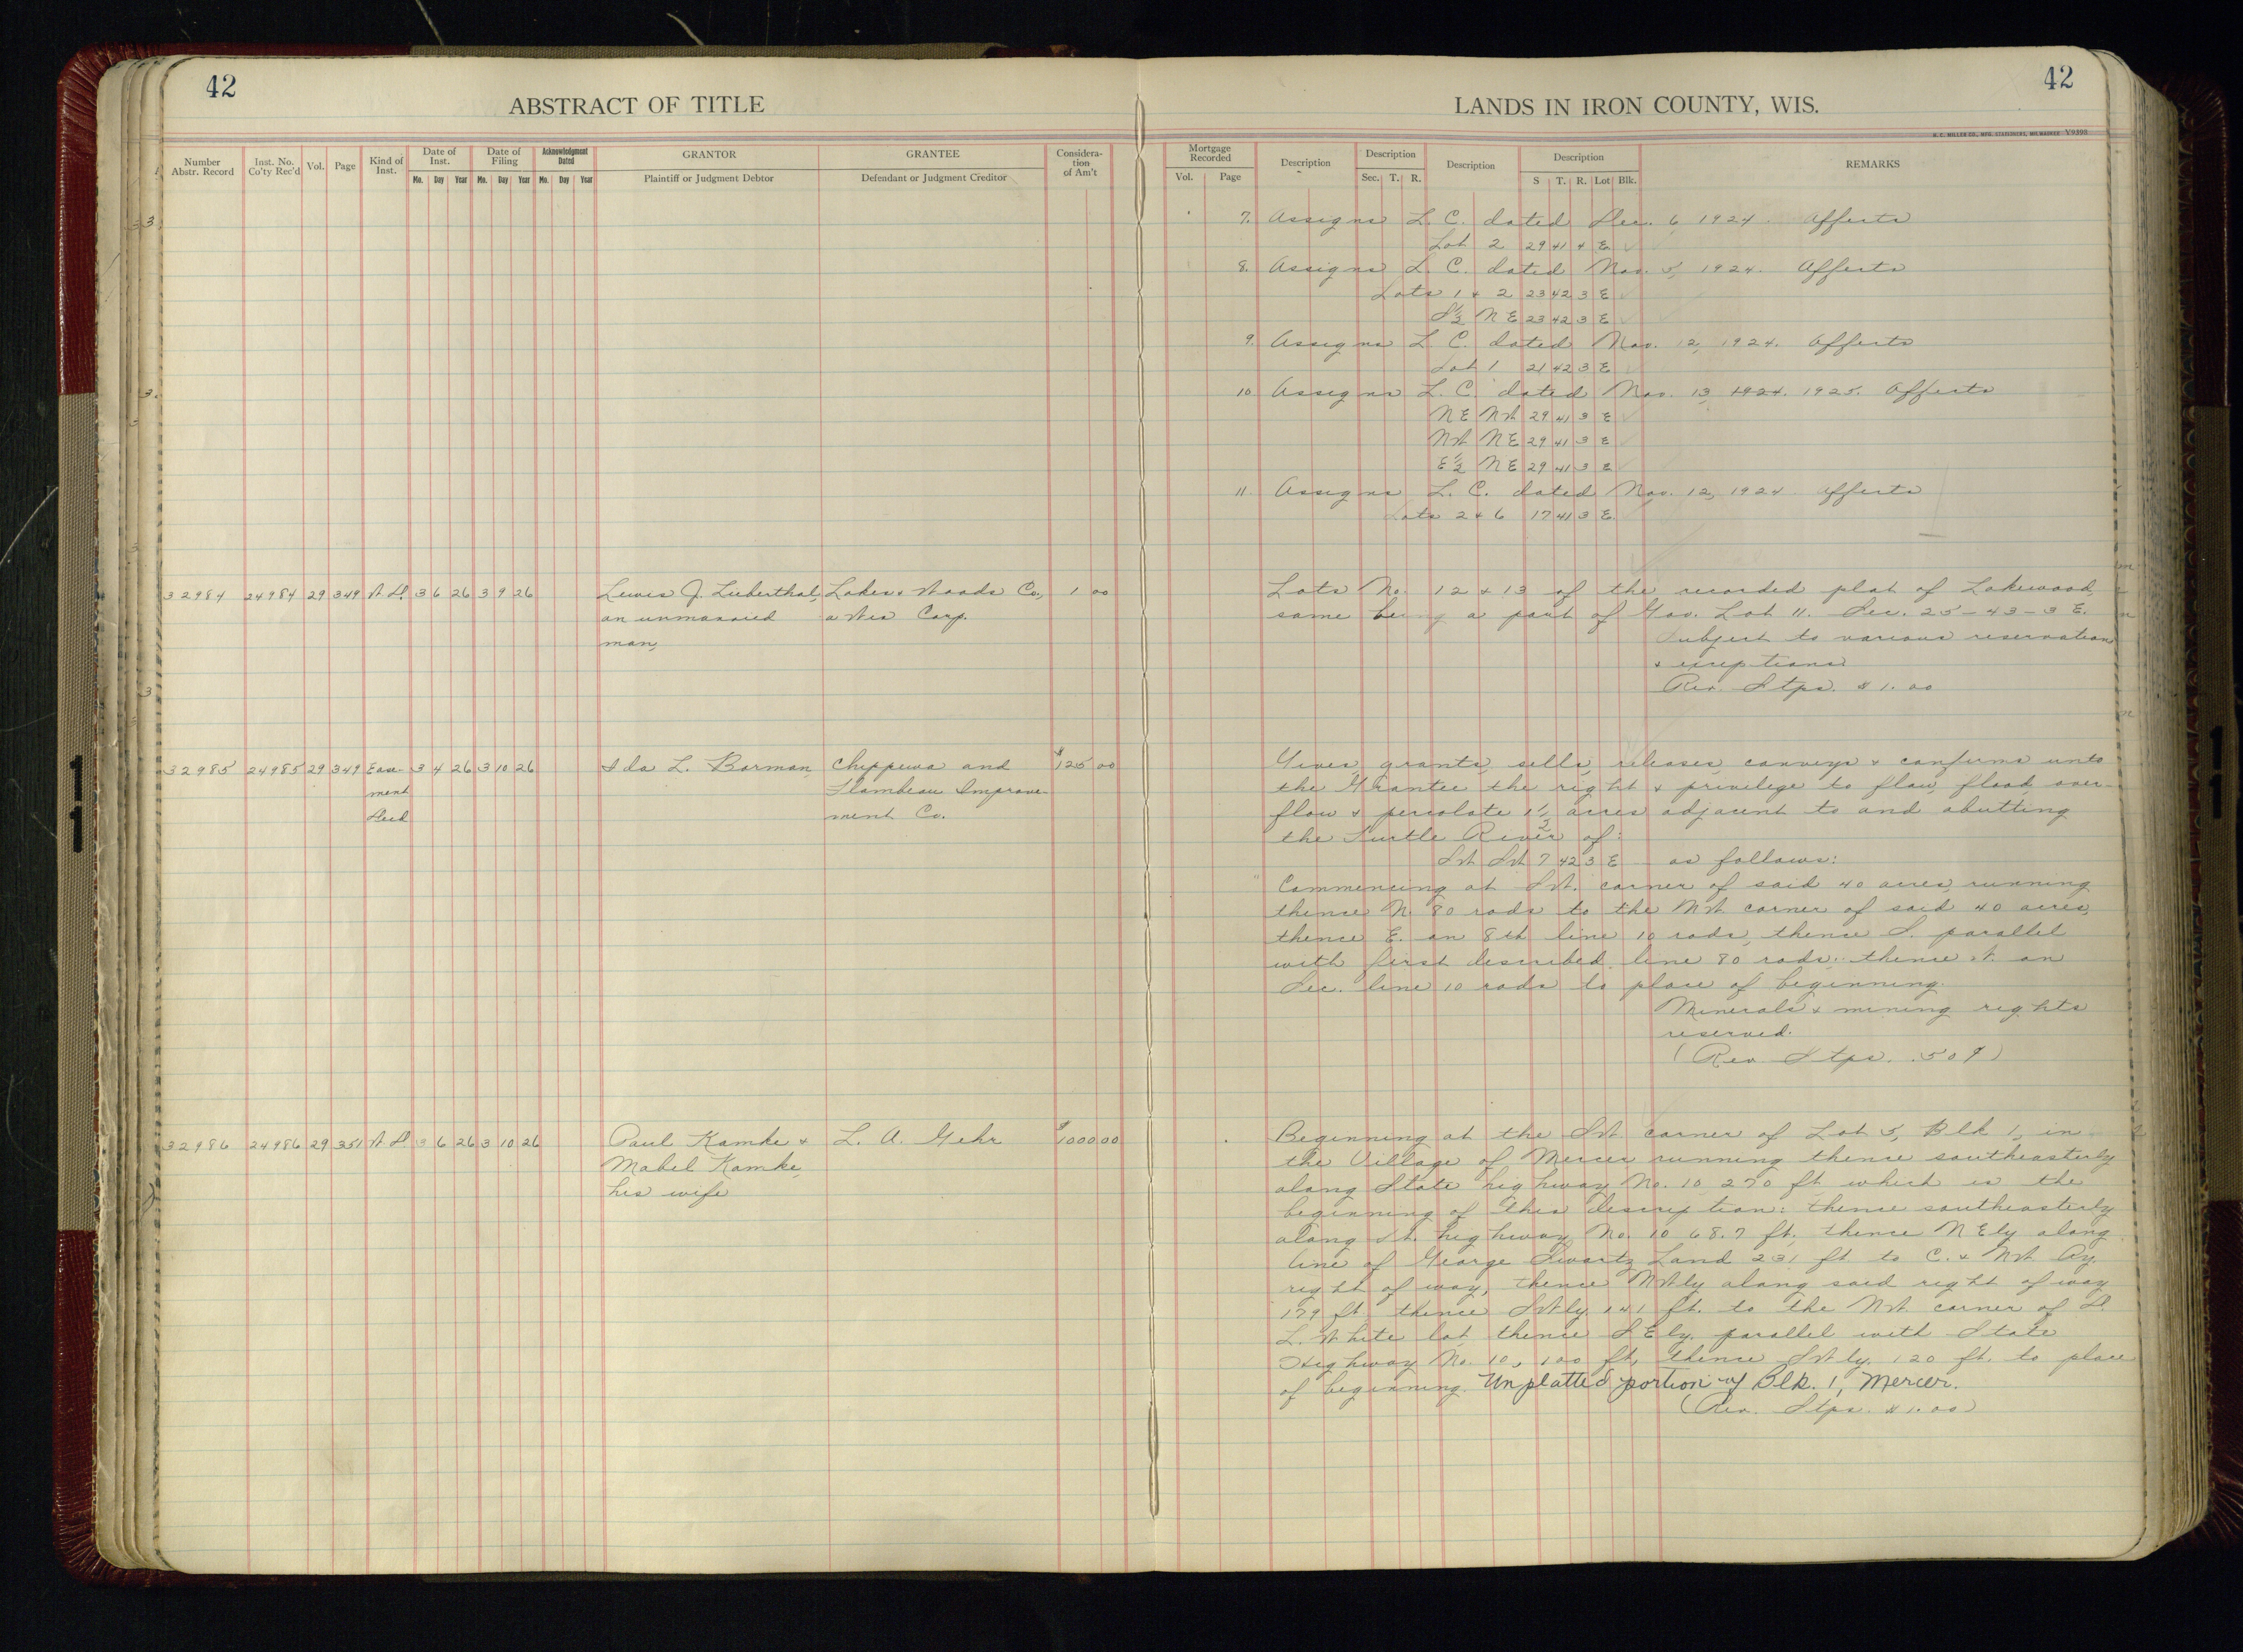 42
42
ABSTRACT OF TITLE
LANDS IN IRON COUNTY, WIS.
H. C. MILLER CO., MFG. STATIONERS, MILWAUKEE V9398
Number Abstr. Record
Inst. No. Co'ty Rec'd
Vol.
Page
Kind of Inst.
Date of Inst.
Mo. Day Year
Date of Filing
Mo. Day Year
Acknowledgment Dated
Mo. Day Year
GRANTOR
Plaintiff or Judgment Debtor
GRANTEE
Defendant or Judgment Creditor
Considera-tion of Am't
Mortgage Recorded
Vol. Page
Description
Description
Sec. T. R.
Description
Description
S T. R. Lot Blk.
REMARKS
7. Assigns L. C. dated Dec. 6, 1924. Affects
Lot 2 29 41 4 E.
8. Assigns L. C. dated Nov. 5, 1924. Affects
Lots 1 & 2 23 42 3 E
S½ NE 23 42 3 E
9. Assigns L. C. dated Nov. 12, 1924. Affects
Lot 1 21 42 3 E
10 Assigns L. C. dated Nov. 13, 1924. 1925. Affects
NE NW 29 41 3 E
NW NE 29 41 3 E
E½ NE 29 41 3 E
11. Assigns L. C. dated Nov. 12, 1924 Affects
Lots 2 & 6 17 41 3 E.
32984 24984 29 349 W D. 3 6 26 3 9 26 Lewis J. Lieberthal, Lakes & Woods Co., 1 00
an unmarried a Wis Corp.
man,
Lots No. 12 & 13 of the recorded plat of Lakewood,
same being a part of Gov. Lot 11. Sec. 25-43-3 E.
Subject to various reservations
& exceptions.
Rev. Stps. $1.00
32985 24985 29 349 Ease- 3 4 26 3 10 26 Ida L. Borman, Chippewa and $125 00
ment Flambeau Improve-
Deed ment Co.
Gives, grants, sells, releases, conveys & confirms unto
the Grantee the right & privilege to flow, flood, over-
flow & percolate 1½ acres adjacent to and abutting
the Turtle River of:
SW SW 7 42 3 E as follows:
Commencing at SW. corner of said 40 acres, running
thence N. 80 rods to the NW corner of said 40 acres,
thence E. on 8th line 10 rods, thence S. parallel
with first described line 80 rods; thence W. on
Sec. line 10 rods to place of beginning.
Minerals & mining rights
reserved.
(Rev. Stps. .50¢)
32986 24986 29 351 W D 3 6 26 3 10 26 Paul Kamke & L. A. Gehr $1000 00
Mabel Kamke,
his wife
Beginning at the SW corner of Lot 5, Blk 1, in
the Village of Mercer running thence southeasterly
along State highway No. 10 270 ft which is the
beginning of this description: thence southeasterly
along St. highway No. 10 68.7 ft, thence NEly along
line of George Swartz Land 231 ft to C. & NW Ry.
right of way, thence NWly along said right of way
179 ft. thence SWly 141 ft. to the NW. corner of D.
L. White lot, thence SEly. parallel with State
Highway No. 10, 100 ft, thence SWly. 120 ft. to place
of beginning. Unplatted portion of Blk. 1, Mercer.
(Rev. Stps. $1.00)